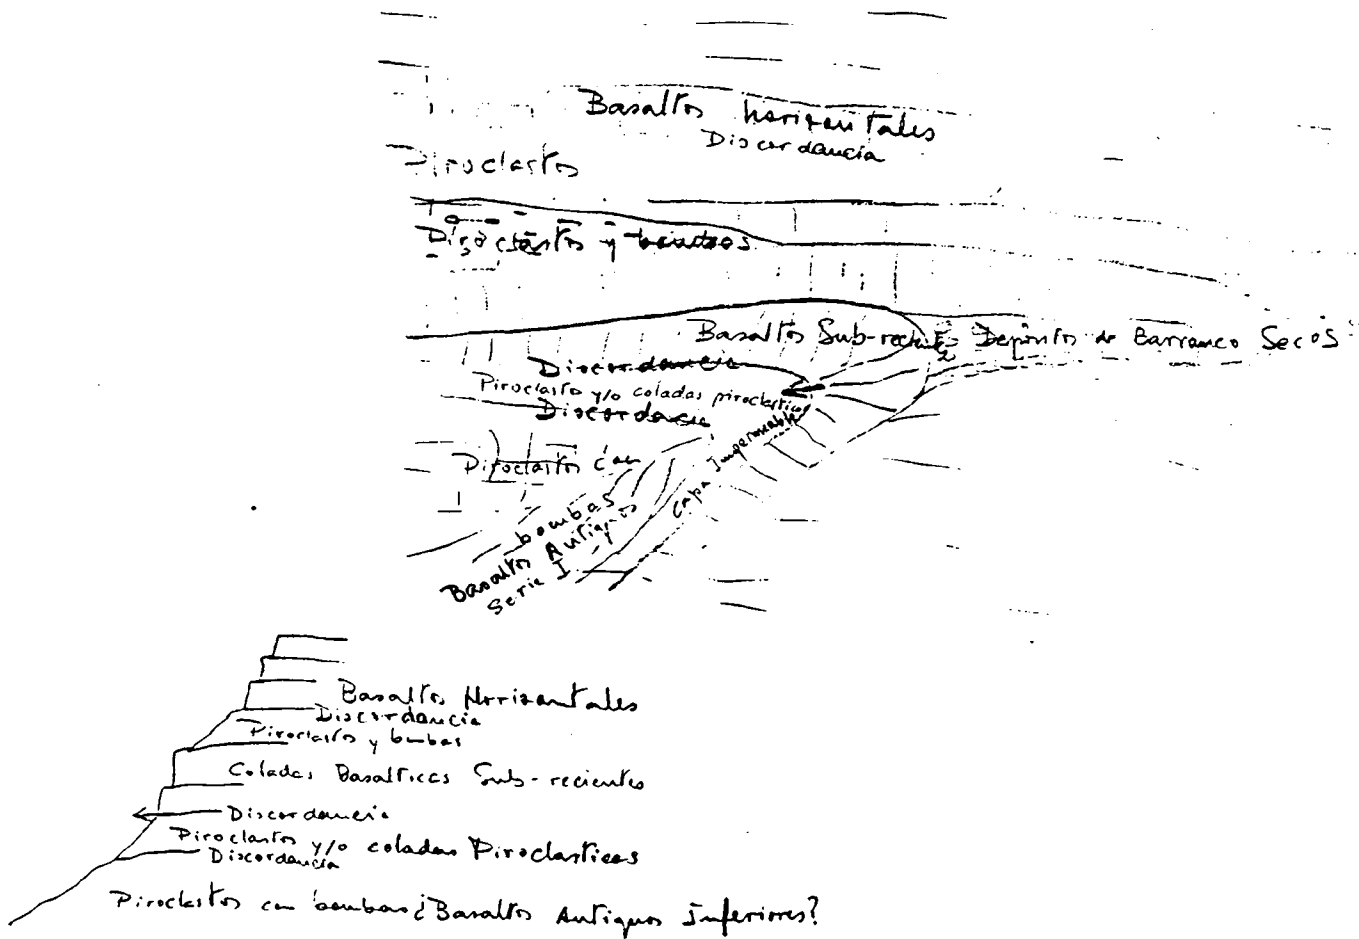 Basaltos horizontales
Discordancia
Piroclastos
Piroclastos y bombas
Basaltos Sub-recientes
Depositos de Barranco Secos
Discordancia
Piroclastos y/o coladas piroclasticas
Discordancia
Capa Impermeable
Piroclastos con
bombas
Basaltos Antiguos
Serie I
Basaltos Horizontales
Discordancia
Piroclastos y bombas
Coladas Basalticas Sub-recientes
Discordancia
Piroclastos y/o coladas Piroclasticas
Discordancia
Piroclastos con bombas ¿Basaltos Antiguos Inferiores?